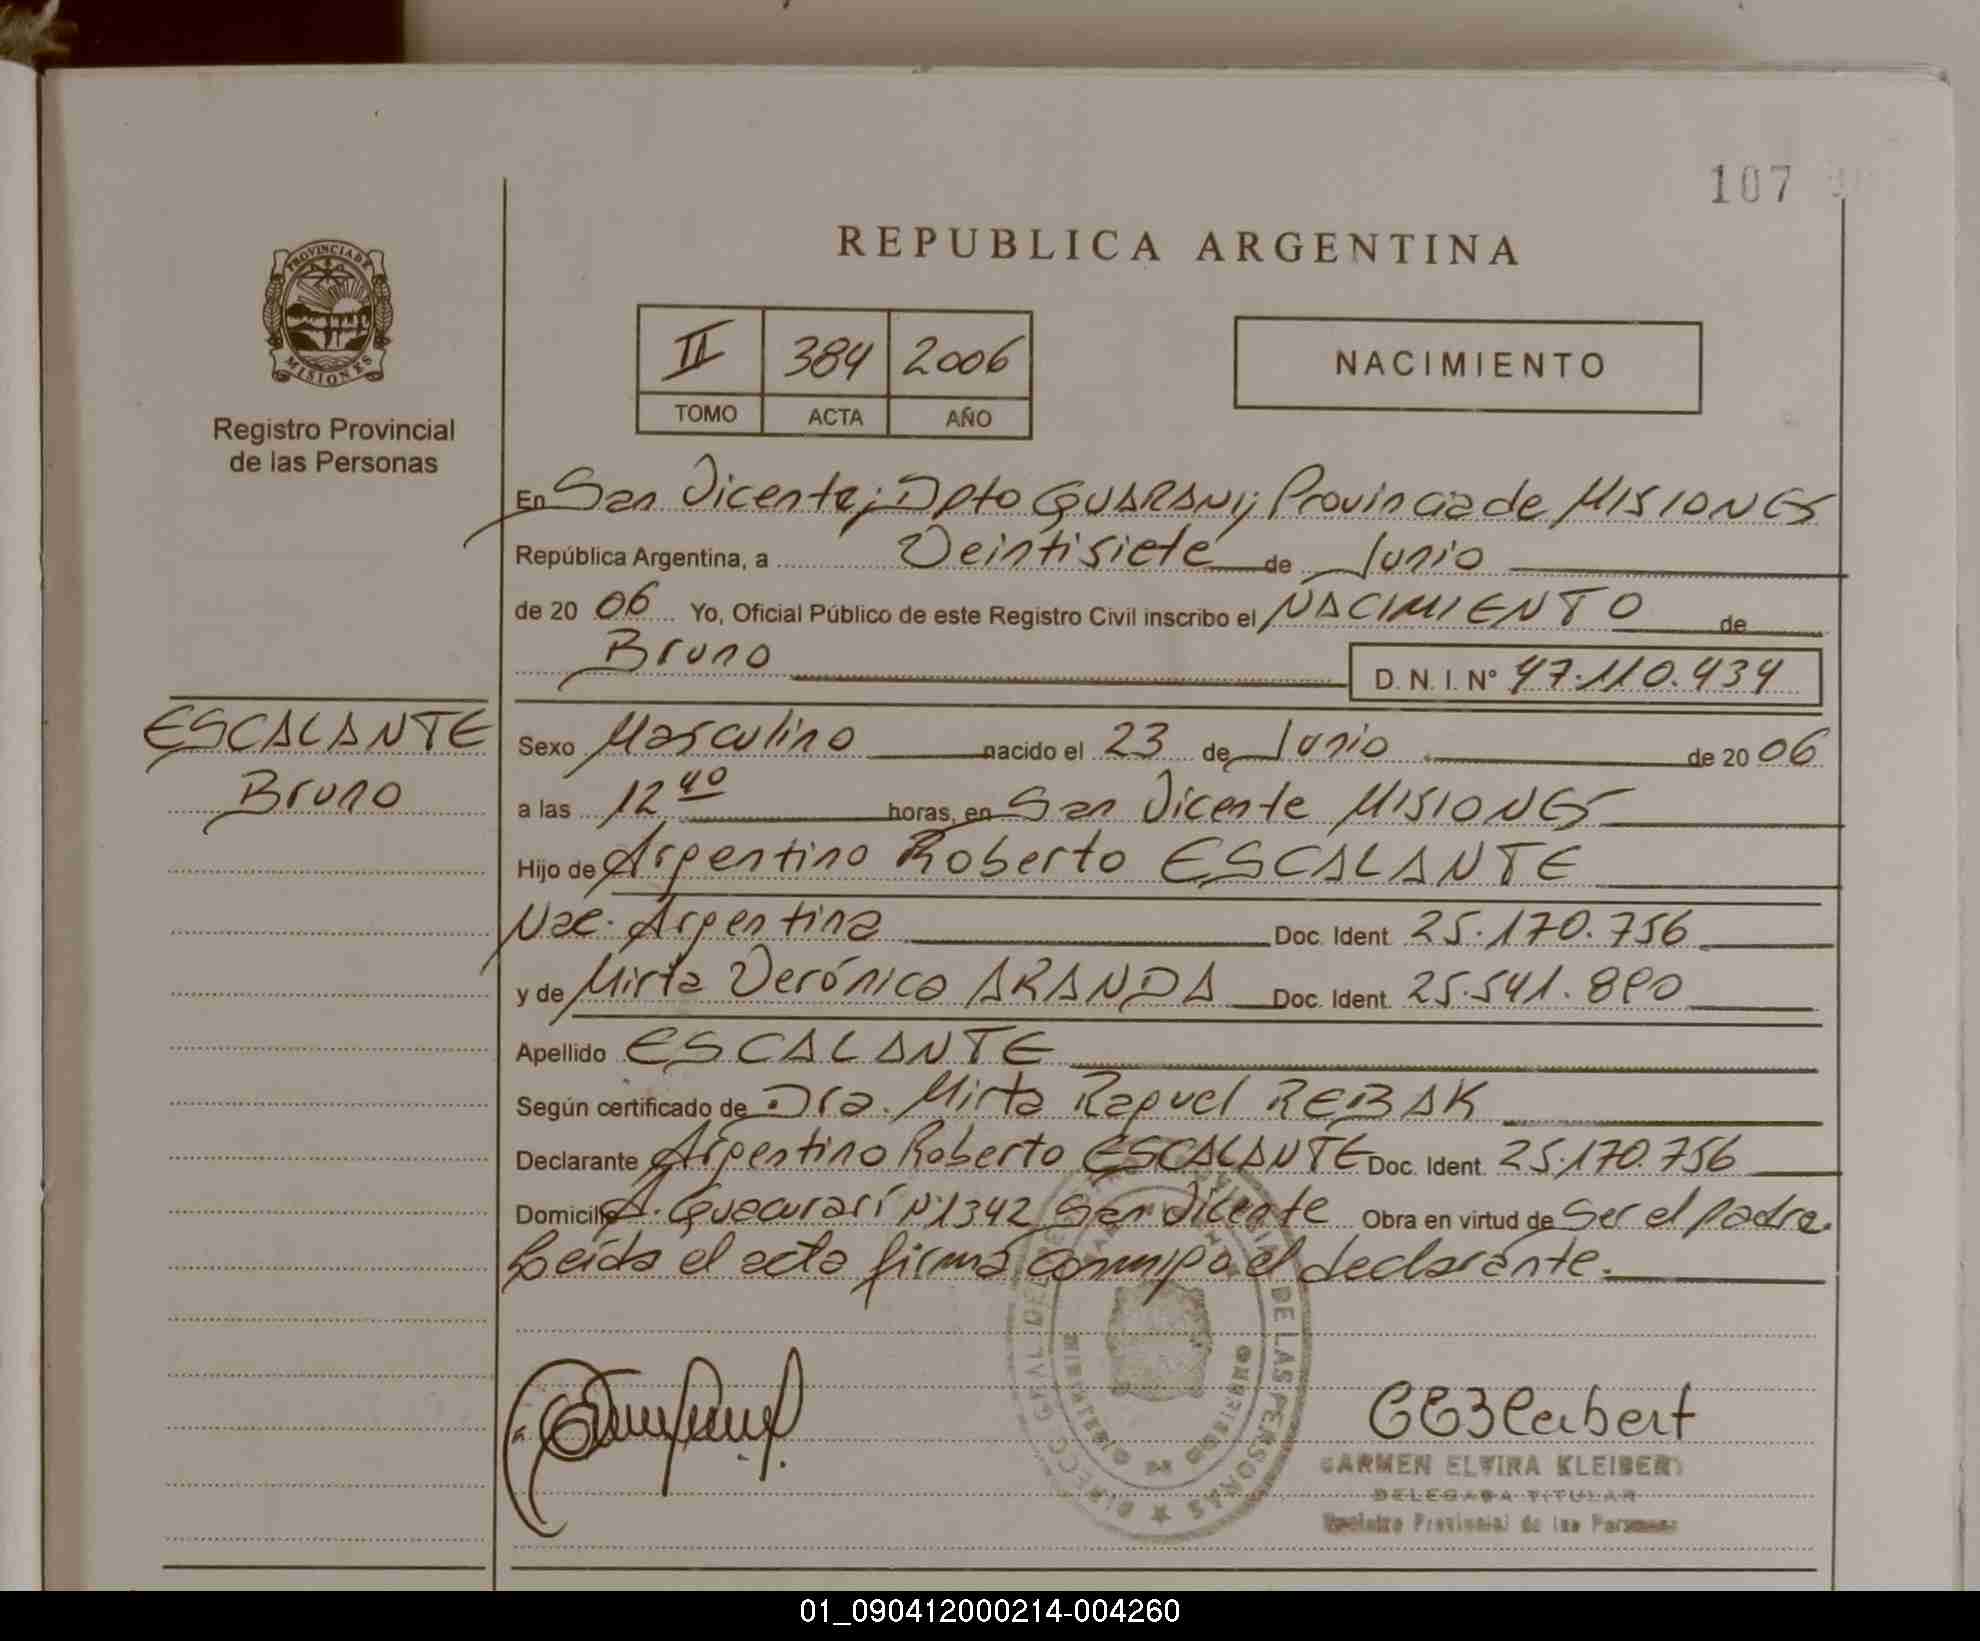 107
REPUBLICA ARGENTINA
PROVINCIA DE
MISIONES
Registro Provincial
de las Personas
II 384 2006
TOMO ACTA AÑO
NACIMIENTO
En San Vicente; Dpto GUARANI; Provincia de MISIONES
República Argentina, a Veintisiete de Junio
de 20 06 Yo, Oficial Público de este Registro Civil inscribo el NACIMIENTO de
Bruno D. N. I. N° 47.110.434
ESCALANTE
Bruno
Sexo Masculino nacido el 23 de Junio de 20 06
a las 12 40 horas, en San Vicente MISIONES
Hijo de Argentino Roberto ESCALANTE
Nac. Argentina Doc. Ident. 25.170.756
y de Mirta Verónica ARANDA Doc. Ident. 25.541.
Apellido ESCALANTE
Según certificado de Dra. Mirta Raquel REBAK
Declarante Argentino Roberto ESCALANTE Doc. Ident. 25.170.756
Domicilio A. Guacurarí N°1342 San Vicente Obra en virtud de Ser el padre.
Leída el acta firma conmigo el declarante.
DE LAS PERSONAS
CARMEN ELVIRA KLEIBERT
DELEGADA TITULAR
Registro Provincial de las Personas
01_090412000214-004260